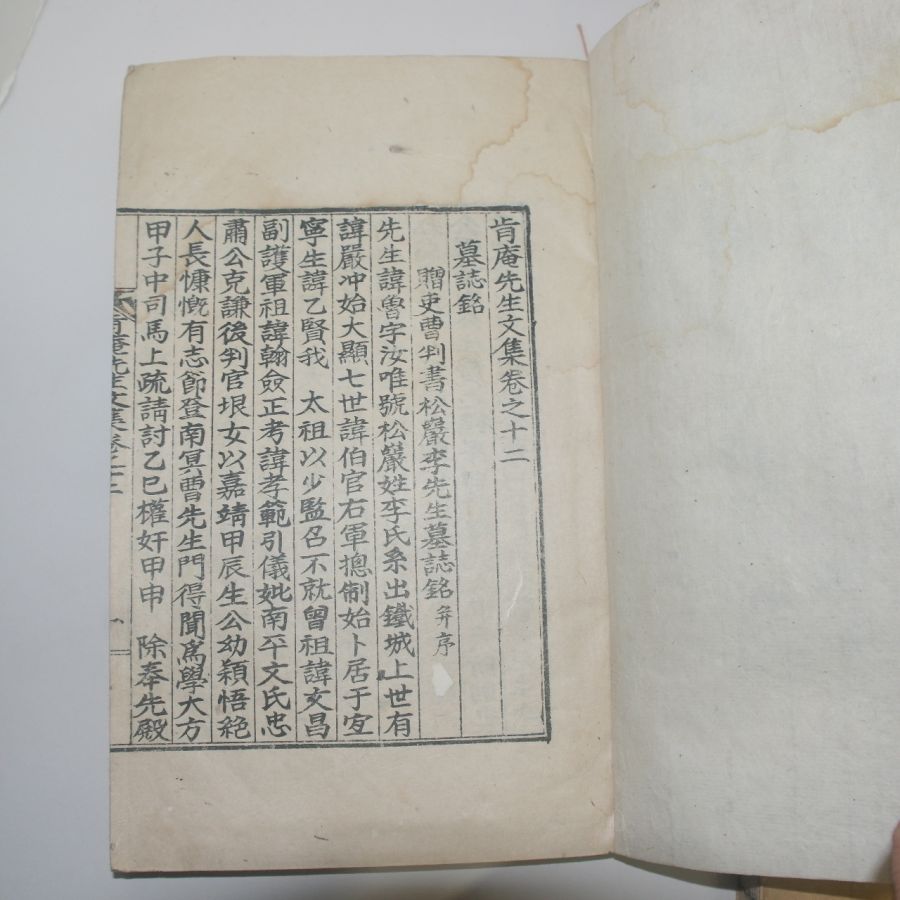 肯庵先生文集卷之十二
墓誌銘
贈吏曹判書松巖李先生墓誌銘 并序
先生諱魯字汝唯號松巖姓李氏系出鐵城上世有
諱嚴冲始大顯七世諱伯官右軍摠制始卜居于宜
寧生諱乙賢我 太祖以少監召不就曾祖諱文昌
副護軍祖諱翰僉正考諱孝範引儀妣南平文氏忠
肅公克謙後判官垠女以嘉靖甲辰生公幼穎悟絶
人長慷慨有志節登南冥曺先生門得聞爲學大方
甲子中司馬上疏請討乙巳權奸甲申 除奉先殿
肯庵先生文集卷之十二
一